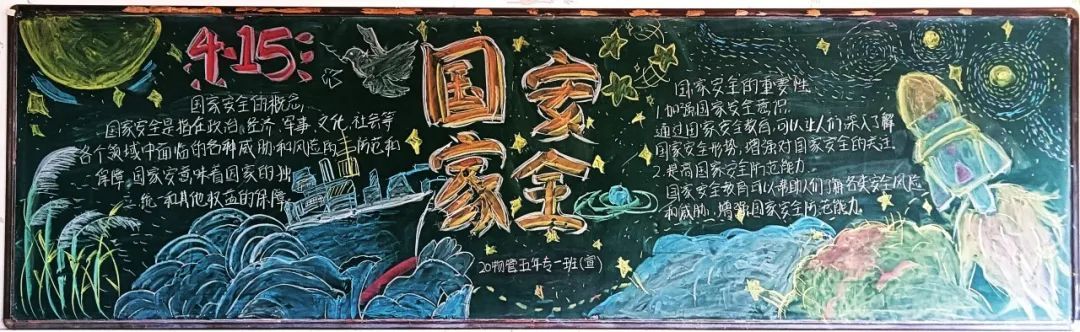 4·15
国家安全的概念
国家安全是指在政治、经济、军事、文化、社会等
各个领域中面临的各种威胁和风险的防范和
保障。国家安意味着国家的独
统一和其他权益的保障
国家
安全
20物管五年专一班(宣)
国家安全的重要性
1.加强国家安全意识
通过国家安全教育,可以让人们深入了解
国家安全形势,增强对国家安全的关注
2.提高国家安全防范能力
国家安全教育可以帮助人们了解各类安全风险
和威胁,增强国家安全防范能力